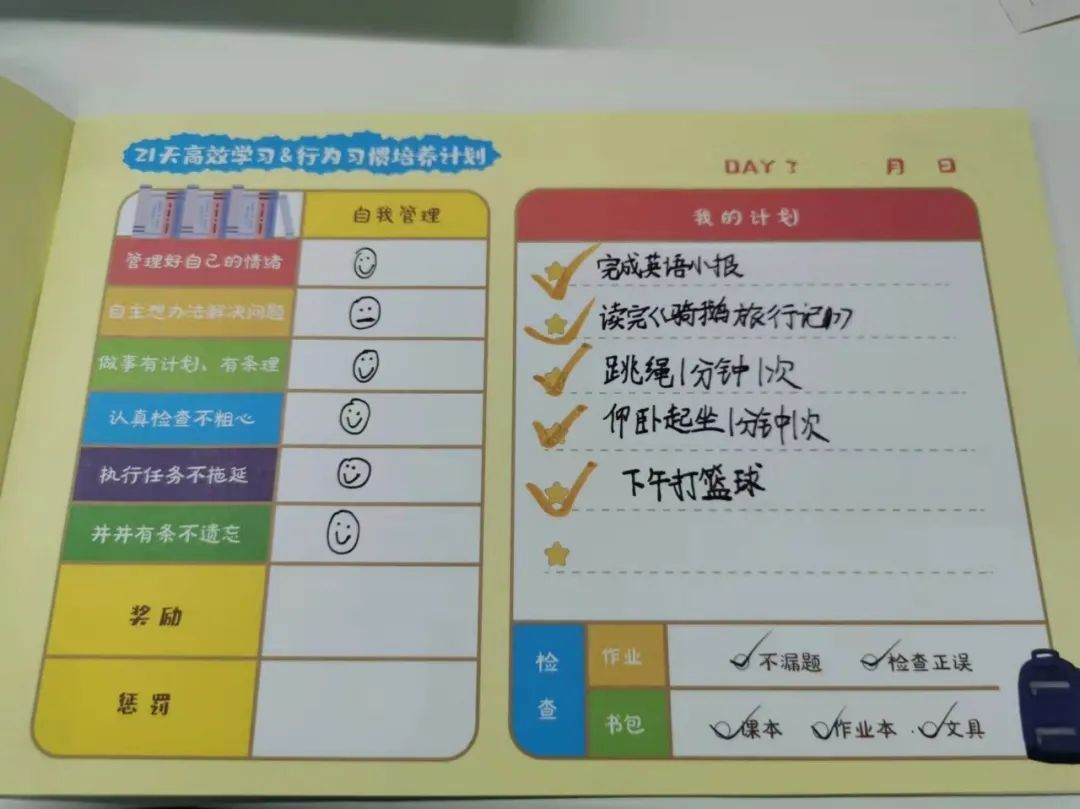 21天高效学习&行为习惯培养计划
DAY 3 月 日
自我管理
管理好自己的情绪
自主想办法解决问题
做事有计划、有条理
认真检查不粗心
执行任务不拖延
井井有条不遗忘
奖励
惩罚
我的计划
完成英语小报
读完《骑鹅旅行记》
跳绳1分钟1次
仰卧起坐1分钟1次
下午打篮球
检查
作业
不漏题 检查正误
书包
课本 作业本 文具